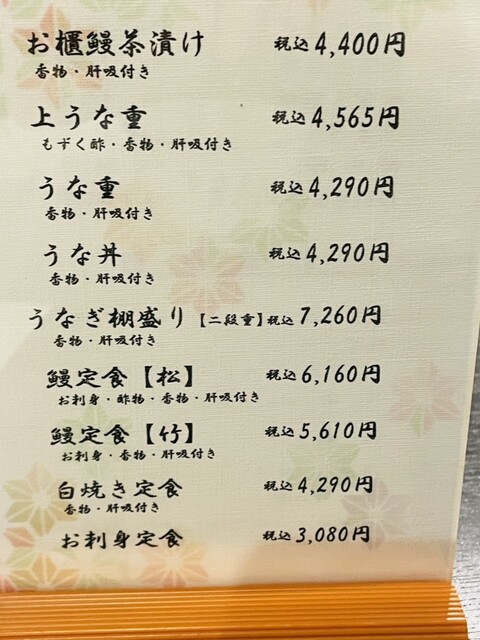 お櫃鰻茶漬け 税込4,400円
香物・肝吸付き
上うな重 税込4,565円
もずく酢・香物・肝吸付き
うな重 税込4,290円
香物・肝吸付き
うな丼 税込4,290円
香物・肝吸付き
うなぎ棚盛り【二段重】税込7,260円
香物・肝吸付き
鰻定食【松】 税込6,160円
お刺身・酢物・香物・肝吸付き
鰻定食【竹】 税込5,610円
お刺身・香物・肝吸付き
白焼き定食 税込4,290円
香物・肝吸付き
お刺身定食 税込3,080円